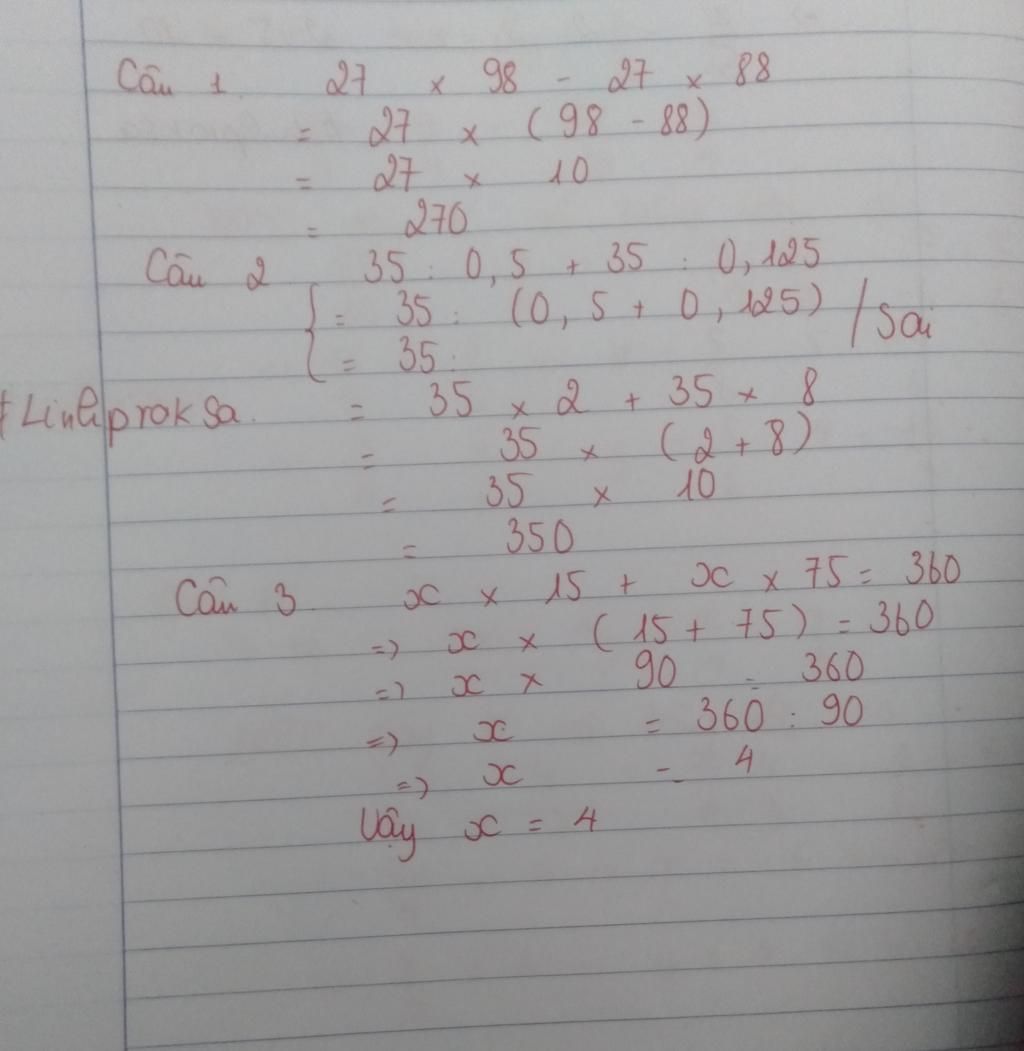 Câu 1 27 × 98 - 27 × 88
= 27 × (98 - 88)
= 27 × 10
= 270
Câu 2 35 : 0,5 + 35 : 0,125
= 35 : (0,5 + 0,125) / Sai
= 35 :
= 35 × 2 + 35 × 8
= 35 × (2 + 8)
= 35 × 10
= 350
Câu 3 x × 15 + x × 75 = 360
=> x × (15 + 75) = 360
=> x × 90 = 360
=> x = 360 : 90
=> x = 4
Vậy x = 4